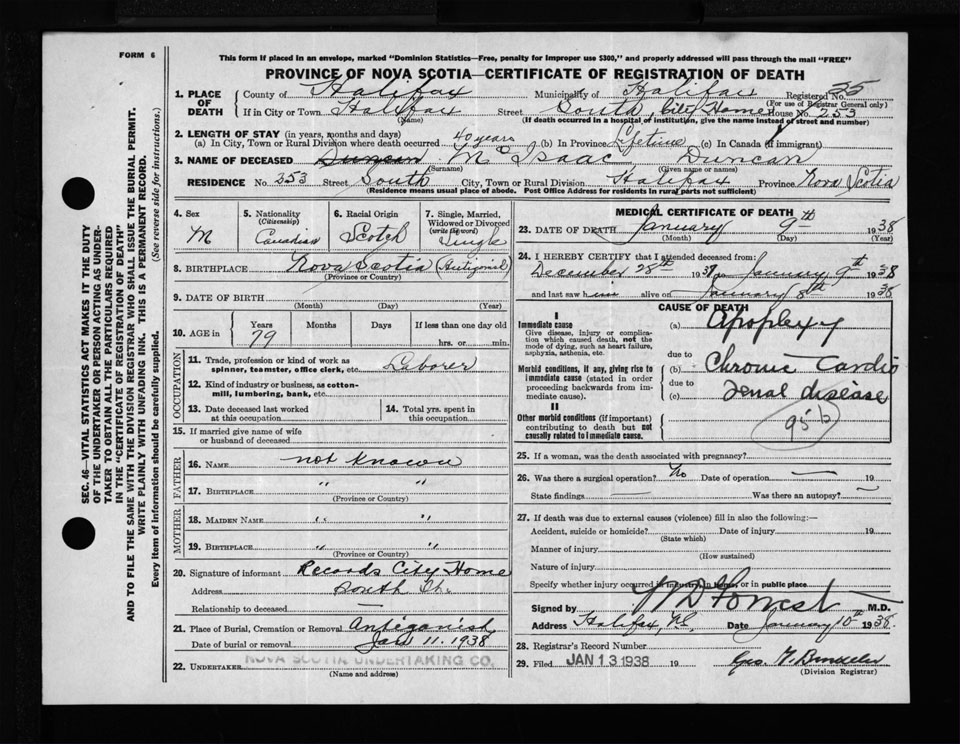 FORM 6
This form if placed in an envelope, marked "Dominion Statistics—Free, penalty for improper use $300," and properly addressed will pass through the mail "FREE"
PROVINCE OF NOVA SCOTIA—CERTIFICATE OF REGISTRATION OF DEATH
SEC. 46—VITAL STATISTICS ACT MAKES IT THE DUTY
OF THE UNDERTAKER OR PERSON ACTING AS UNDER-
TAKER TO OBTAIN ALL THE PARTICULARS REQUIRED
IN THE "CERTIFICATE OF REGISTRATION OF DEATH"
AND TO FILE THE SAME WITH THE DIVISION REGISTRAR WHO SHALL ISSUE THE BURIAL PERMIT.
WRITE PLAINLY WITH UNFADING INK. THIS IS A PERMANENT RECORD.
Every item of information should be carefully supplied. (See reverse side for instructions.)
1. PLACE OF DEATH County of Halifax Municipality of Halifax Registered No. 35
(For use of Registrar General only)
If in City or Town Halifax Street South, City Home House No. 253
(Name) (If death occurred in a hospital of institution, give the name instead of street and number)
2. LENGTH OF STAY (in years, months and days)
(a) In City, Town or Rural Division where death occurred 40 years (b) In Province Lifetime (c) In Canada (if immigrant)
3. NAME OF DECEASED Duncan Mc Isaac Duncan
(Surname) (Given name or names)
RESIDENCE No. 353 Street South City, Town or Rural Division Halifax Province Nova Scotia
(Residence means usual place of abode. Post Office Address for residents in rural parts not sufficient)
4. Sex M
5. Nationality (Citizenship) Canadian
6. Racial Origin Scotch
7. Single, Married, Widowed or Divorced (write the word) Single
8. BIRTHPLACE Nova Scotia (Antigonish)
(Province or Country)
9. DATE OF BIRTH
(Month) (Day) (Year)
10. AGE in Years 79 Months Days If less than one day old
hrs. or min.
OCCUPATION
11. Trade, profession or kind of work as spinner, teamster, office clerk, etc. Laborer
12. Kind of industry or business, as cotton-mill, lumbering, bank, etc.
13. Date deceased last worked at this occupation
14. Total yrs. spent in this occupation
15. If married give name of wife or husband of deceased
FATHER
16. NAME not known
17. BIRTHPLACE " "
(Province or Country)
MOTHER
18. MAIDEN NAME " "
19. BIRTHPLACE " "
(Province or Country)
20. Signature of informant Records City Home
Address South St.
Relationship to deceased —
21. Place of Burial, Cremation or Removal Antigonish
Date of burial or removal Jan 11. 1938
22. UNDERTAKER NOVA SCOTIA UNDERTAKING CO.
(Name and address)
MEDICAL CERTIFICATE OF DEATH
23. DATE OF DEATH January 9th 1938
(Month) (Day) (Year)
24. I HEREBY CERTIFY that I attended deceased from:
December 28th 1937 to January 9th 1938
and last saw him alive on January 8th 1938
CAUSE OF DEATH
I
Immediate cause
Give disease, injury or complication which caused death, not the mode of dying, such as heart failure, asphyxia, asthenia, etc.
(a) Apoplexy
due to
Morbid conditions, if any, giving rise to immediate cause (stated in order proceeding backwards from immediate cause).
(b) Chronic Cardio
due to
(c) renal disease
II
Other morbid conditions (if important) contributing to death but not causally related to immediate cause.
95 b
25. If a woman, was the death associated with pregnancy? —
26. Was there a surgical operation? No Date of operation — 19
State findings — Was there an autopsy? —
27. If death was due to external causes (violence) fill in also the following:—
Accident, suicide or homicide? Date of injury 19
(State which)
Manner of injury
(How sustained)
Nature of injury
Specify whether injury occurred in industry, in home, or in public place
Signed by W D Forrest M.D.
Address Halifax, N.S. Date January 10th 1938.
28. Registrar's Record Number
29. Filed JAN 13 1938 19
(Division Registrar)